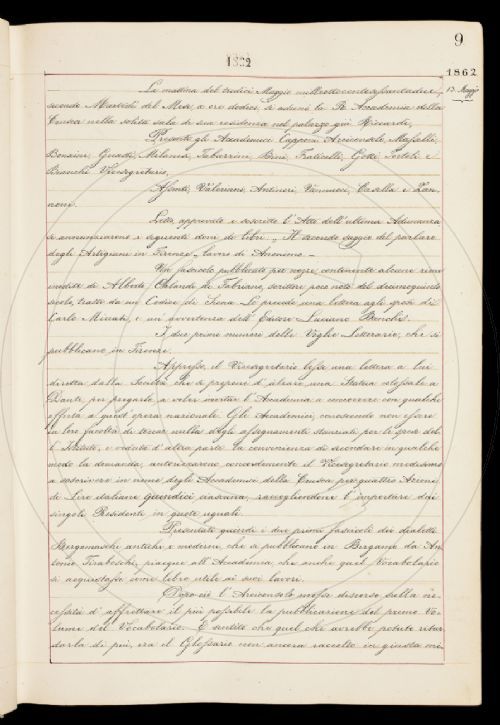 9
1862
1862
13. Maggio
La mattina del tredici Maggio milleottocentosessantadue,
secondo Martedì del Mese, a ore dodici, si adunò la R. Accademia della
Crusca nella solita sala di sua residenza nel palazzo già Riccardi.
Presenti gli Accademici Capponi Arciconsolo, Mastelli,
Bonaini, Guasti, Milanesi, Tabarrini, Bini, Fraticelli, Gotti, Tortoli e
Bianchi Vicesegretario.
Assenti, Valeriano, Antinori, Vannucci, Casella e Zan-
noni.
Letto, approvato e soscritto l'Atto dell'ultima Adunanza
si annunziarono i seguenti doni di libri. „ Il secondo saggio del parlare
degli Artigiani in Firenze „ lavoro di Anonimo. –
Un fascicolo pubblicato per nozze, contenente alcune rime
inedite di Alberto Orlando da Fabriano, scrittore poco noto del decimoquinto
secolo, tratte da un Codice di Siena. Le precede una lettera agli sposi di
Carlo Minuti, e un'avvertenza dell'Editore Luciano Banchi.
I due primi numeri delle Veglie Letterarie, che si
pubblicano in Firenze.
Appresso, il Vicesegretario lesse una lettera a lui
diretta dalla Società che si propone d'alzare una Statua colossale a
Dante per pregarlo a voler invitare l'Accademia a concorrere con qualche
offerta a quest'opera nazionale. Gli Accademici, conoscendo non essere
in loro facoltà di toccar nulla degli assegnamenti stanziati per le spese del-
l'Istituto, e veduta d'altra parte la convenienza di secondare in qualche
modo la domanda, autorizzarono concordemente il Vicesegretario medesimo
a soscrivere in nome degli Accademici della Crusca per quattro Azioni
di Lire italiane quindici ciascuna, raccogliendone l'importare dai
singoli Residenti in quote uguali.
Presentati quindi i due primi fascicoli dei dialetti
Bergamaschi antichi e moderni che si pubblicano in Bergamo da An-
tonio Tiraboschi, piacque all'Accademia, che anche quel Vocabolario
si acquistasse come libro utile ai suoi lavori.
Dopo ciò l'Arciconsolo mosse discorso sulla ne-
cessità d'affrettare il più possibile la pubblicazione del primo Vo-
lume del Vocabolario. E sentito che quel che avrebbe potuto ritar-
darla di più, era il Glossario non ancora raccolto in giusta mi-